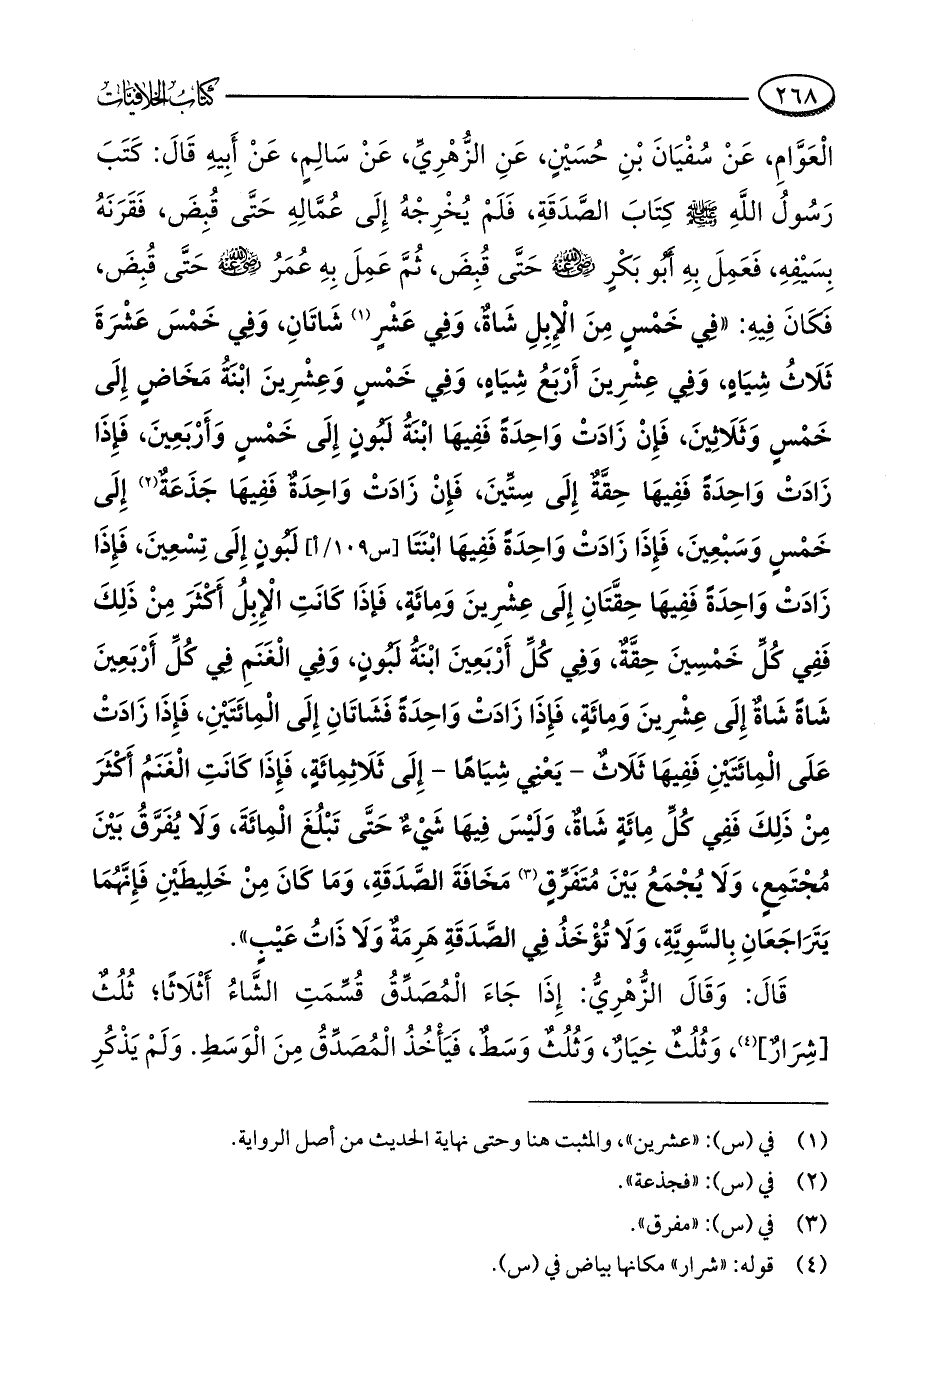 ٢٦٨ كتاب الخلافيات
الْعَوَّامِ، عَنْ سُفْيَانَ بْنِ حُسَيْنٍ، عَنِ الزُّهْرِيِّ، عَنْ سَالِمٍ، عَنْ أَبِيهِ قَالَ: كَتَبَ
رَسُولُ اللَّهِ ﷺ كِتَابَ الصَّدَقَةِ، فَلَمْ يُخْرِجْهُ إِلَى عُمَّالِهِ حَتَّى قُبِضَ، فَقَرَنَهُ
بِسَيْفِهِ، فَعَمِلَ بِهِ أَبُو بَكْرٍ رضي الله عنه حَتَّى قُبِضَ، ثُمَّ عَمِلَ بِهِ عُمَرُ رضي الله عنه حَتَّى قُبِضَ،
فَكَانَ فِيهِ: «فِي خَمْسٍ مِنَ الْإِبِلِ شَاةٌ، وَفِي عَشْرٍ(١) شَاتَانِ، وَفِي خَمْسَ عَشْرَةَ
ثَلَاثُ شِيَاهٍ، وَفِي عِشْرِينَ أَرْبَعُ شِيَاهٍ، وَفِي خَمْسٍ وَعِشْرِينَ ابْنَةُ مَخَاضٍ إِلَى
خَمْسٍ وَثَلَاثِينَ، فَإِنْ زَادَتْ وَاحِدَةً فَفِيهَا ابْنَةُ لَبُونٍ إِلَى خَمْسٍ وَأَرْبَعِينَ، فَإِذَا
زَادَتْ وَاحِدَةً فَفِيهَا حِقَّةٌ إِلَى سِتِّينَ، فَإِنْ زَادَتْ وَاحِدَةٌ فَفِيهَا جَذَعَةٌ(٢) إِلَى
خَمْسٍ وَسَبْعِينَ، فَإِذَا زَادَتْ وَاحِدَةً فَفِيهَا ابْنَتَا [س١٠٩/أ] لَبُونٍ إِلَى تِسْعِينَ، فَإِذَا
زَادَتْ وَاحِدَةً فَفِيهَا حِقَّتَانِ إِلَى عِشْرِينَ وَمِائَةٍ، فَإِذَا كَانَتِ الْإِبِلُ أَكْثَرَ مِنْ ذَلِكَ
فَفِي كُلِّ خَمْسِينَ حِقَّةٌ، وَفِي كُلِّ أَرْبَعِينَ ابْنَةُ لَبُونٍ، وَفِي الْغَنَمِ فِي كُلِّ أَرْبَعِينَ
شَاةً شَاةٌ إِلَى عِشْرِينَ وَمِائَةٍ، فَإِذَا زَادَتْ وَاحِدَةً فَشَاتَانِ إِلَى الْمِائَتَيْنِ، فَإِذَا زَادَتْ
عَلَى الْمِائَتَيْنِ فَفِيهَا ثَلَاثٌ – يَعْنِي شِيَاهًا – إِلَى ثَلَاثِمِائَةٍ، فَإِذَا كَانَتِ الْغَنَمُ أَكْثَرَ
مِنْ ذَلِكَ فَفِي كُلِّ مِائَةٍ شَاةٌ، وَلَيْسَ فِيهَا شَيْءٌ حَتَّى تَبْلُغَ الْمِائَةَ، وَلَا يُفَرَّقُ بَيْنَ
مُجْتَمِعٍ، وَلَا يُجْمَعُ بَيْنَ مُتَفَرِّقٍ(٣) مَخَافَةَ الصَّدَقَةِ، وَمَا كَانَ مِنْ خَلِيطَيْنِ فَإِنَّهُمَا
يَتَرَاجَعَانِ بِالسَّوِيَّةِ، وَلَا تُؤْخَذُ فِي الصَّدَقَةِ هَرِمَةٌ وَلَا ذَاتُ عَيْبٍ».
قَالَ: وَقَالَ الزُّهْرِيُّ: إِذَا جَاءَ الْمُصَدِّقُ قُسِّمَتِ الشَّاءُ أَثْلَاثًا؛ ثُلُثٌ
[شِرَارٌ](٤)، وَثُلُثٌ خِيَارٌ، وَثُلُثٌ وَسَطٌ، فَيَأْخُذُ الْمُصَدِّقُ مِنَ الْوَسَطِ. وَلَمْ يَذْكُرِ
(١) في (س): «عشرين»، والمثبت هنا وحتى نهاية الحديث من أصل الرواية.
(٢) في (س): «فجذعة».
(٣) في (س): «مفرق».
(٤) قوله: «شرار» مكانها بياض في (س).